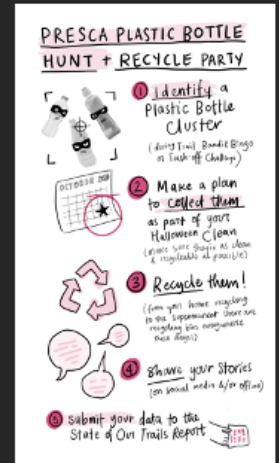 PRESCA PLASTIC BOTTLE
HUNT + RECYCLE PARTY
1 Identify a
Plastic Bottle
Cluster
(during Trail Bandit Bingo
or Trash-off Challenge)
OCTOBER 2020
2 Make a plan
to collect them
as part of your
Halloween Clean
(make sure they're as clean
& recycleable as possible)
3 Recycle them!
(from your home recycling
to the supermarket there are
recycling bins everywhere
these days!)
4 Share your Stories
(on social media &/or offline)
5 Submit your data to the
State of Our Trails Report